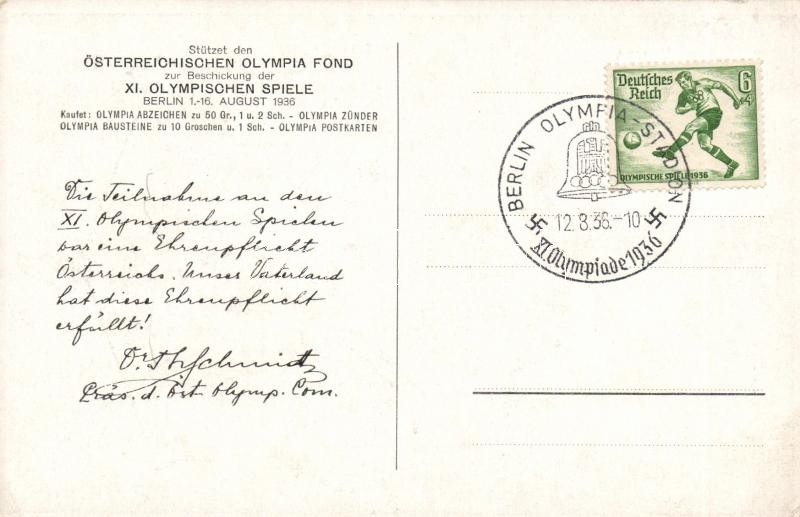 Stützet den
ÖSTERREICHISCHEN OLYMPIA FOND
zur Beschickung der
XI. OLYMPISCHEN SPIELE
BERLIN 1.-16. AUGUST 1936
Kaufet: OLYMPIA ABZEICHEN zu 50 Gr., 1 u. 2 Sch. - OLYMPIA ZÜNDER
OLYMPIA BAUSTEINE zu 10 Groschen u. 1 Sch. - OLYMPIA POSTKARTEN
Die Teilnahme an den
XI. Olympischen Spielen
war eine Ehrenpflicht
Österreichs. Unser Vaterland
hat diese Ehrenpflicht
erfüllt!
Dr. Th Schmidt
Präs. d. Öst. Olymp. Com.
Deutsches
Reich
6
+4
OLYMPISCHE SPIELE 1936
BERLIN OLYMPIA-STADION
12.8.36.-10
XI. Olympiade 1936